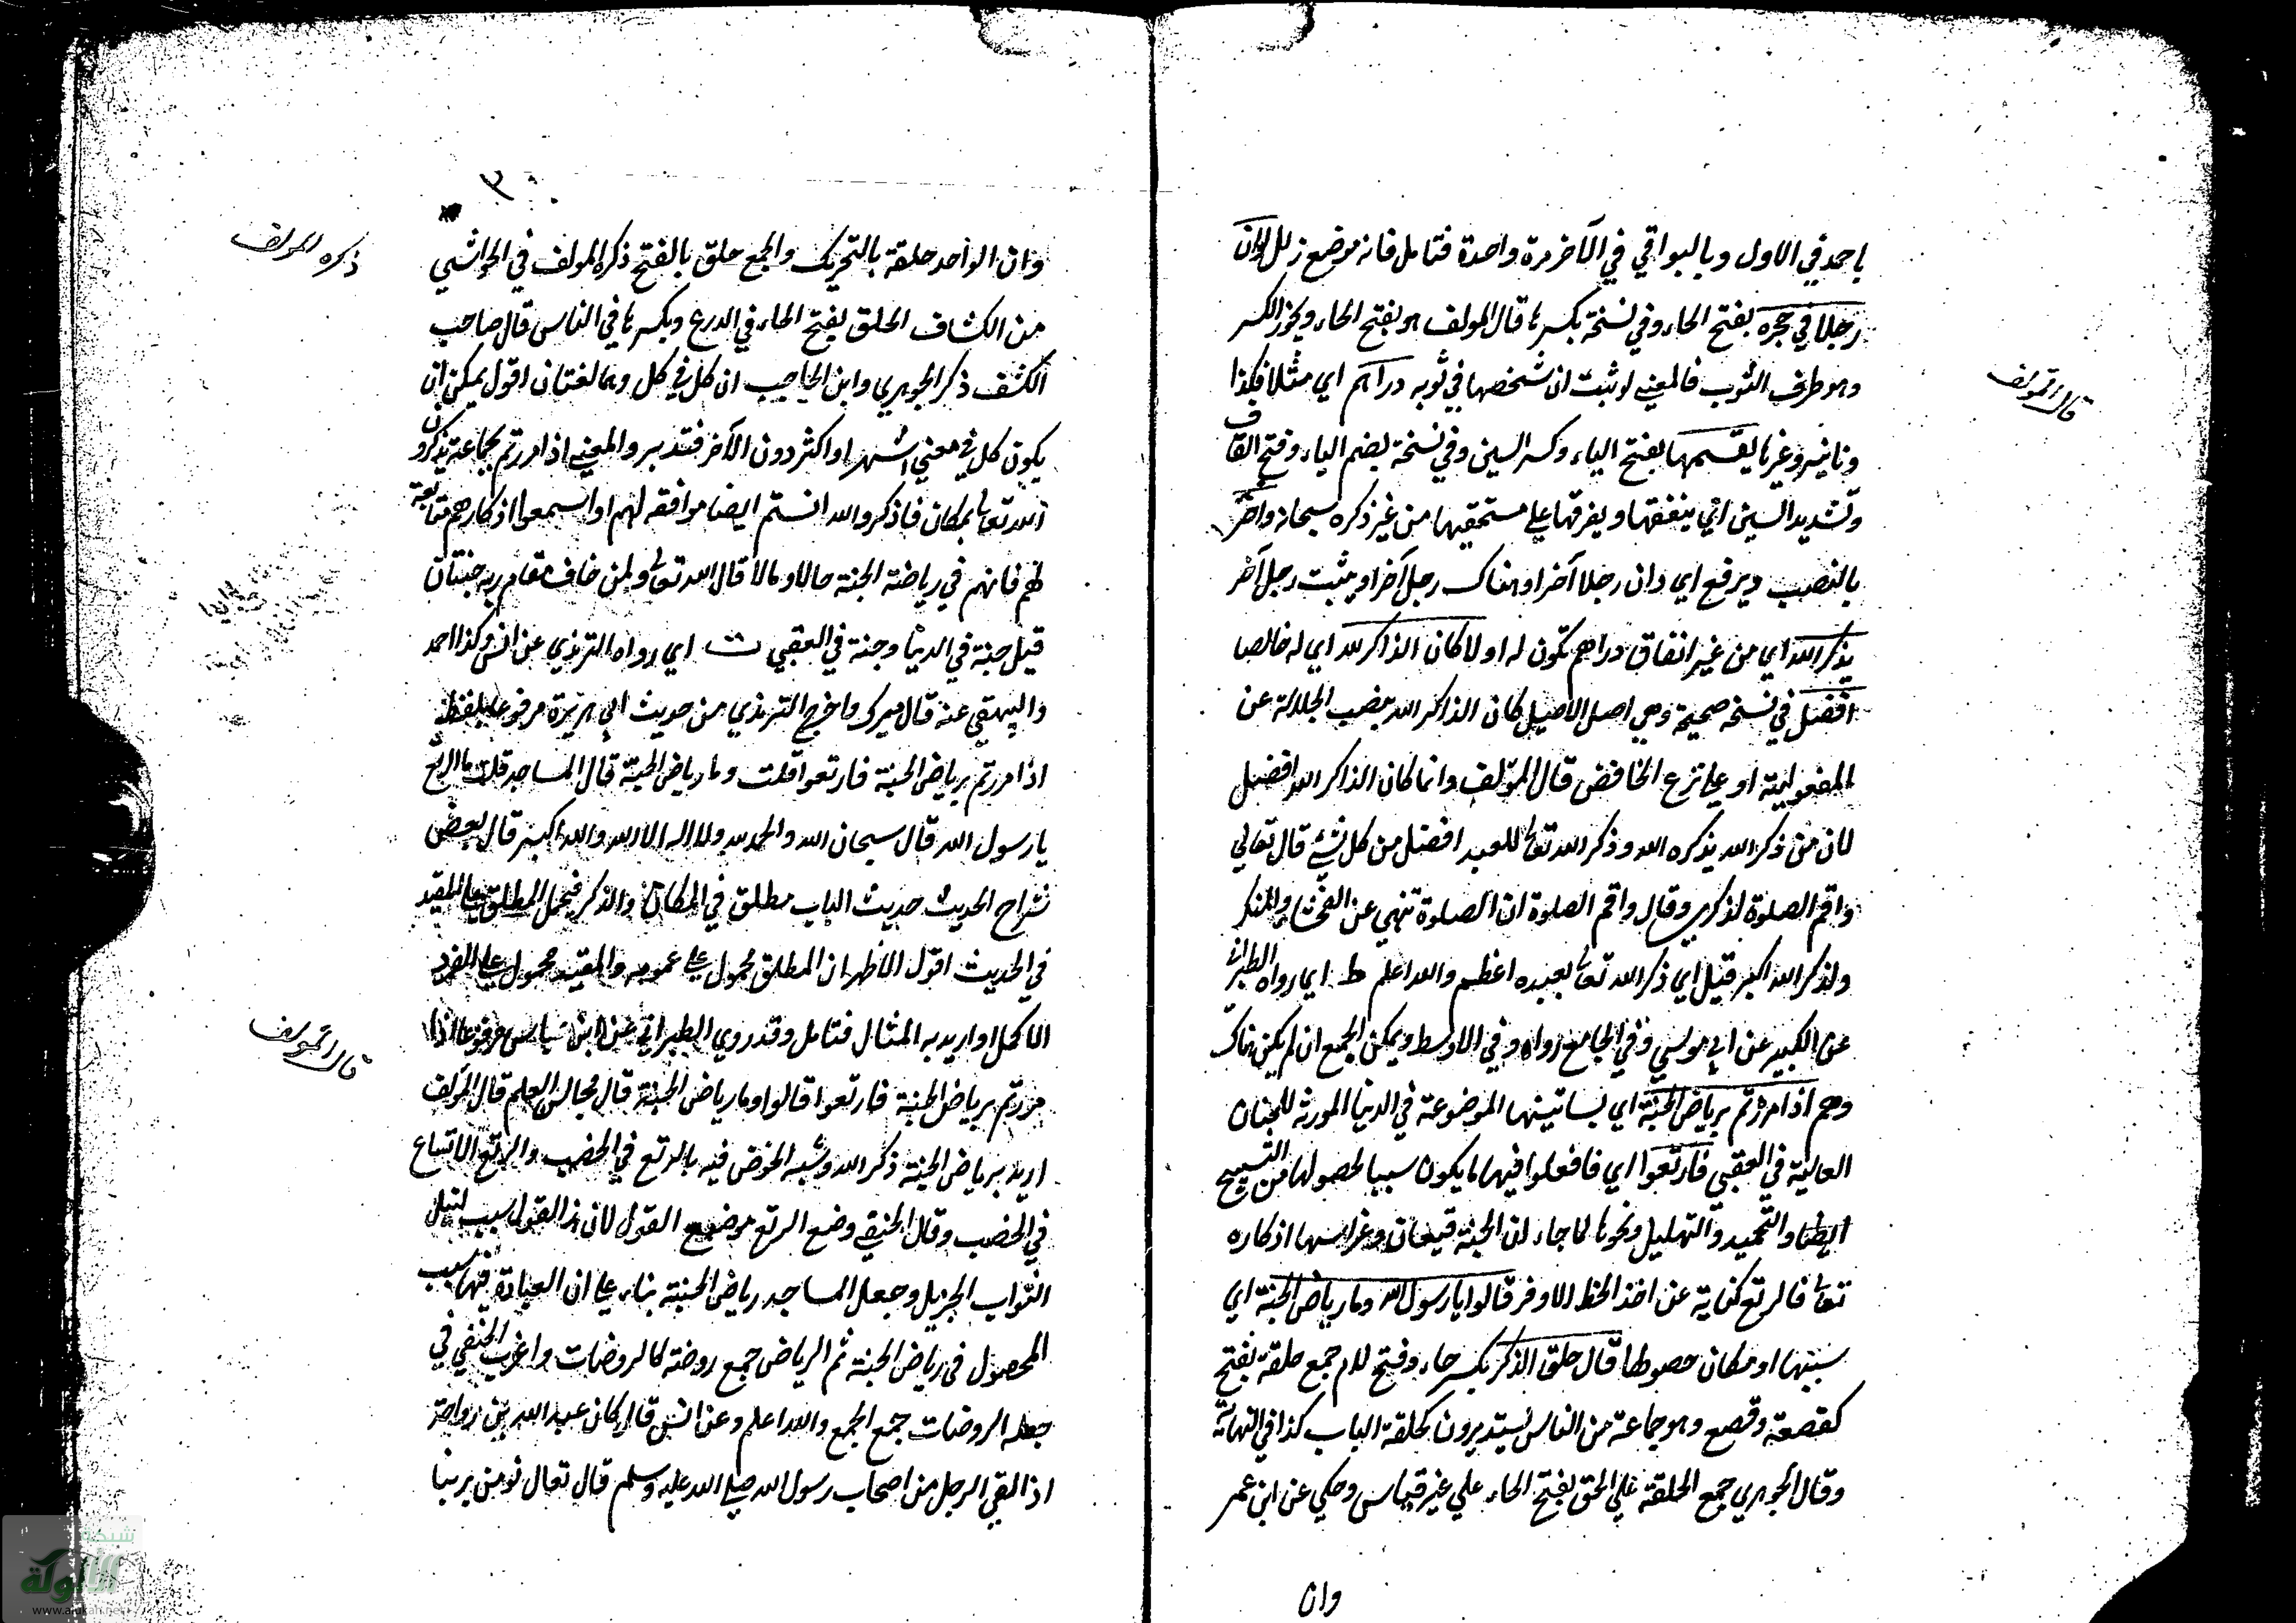 باحمد في الاول وبالبواقي في الآخر مرة واحدة فتامل فانه موضع زلل لو ان
رجلا في حجره بفتح الحاء وفي نسخة بكسرها قال المولف هو بفتح الحاء ويجوز الكسر
وهو طرف الثوب فالمعني لو ثبت ان شخصها في ثوبه دراهم اي مثلا فكذا
دنانير وغيرها يقسمها بفتح الياء وكسر السين وفي نسخة بضم الياء وفتح القاف
وتشديد السين اي ينفقها ويفرقها علي مستحقيها من غير ذكره سبحانه وآخر
بالنصب ويرفع اي وان رجلا آخر او هناك رجل آخر او يثبت رجل آخر
يذكر الله اي من غير انفاق دراهم تكون له او لا كان الذاكر لله اي له خالصا
افضل في نسخة صحيحة وهي اصل الاصيل كان الذاكر الله بنصب الجلالة عن
المفعولية او علي نزع الخافض قال المؤلف وانما كان الذاكر الله افضل
لان من ذكر الله يذكره الله وذكر الله تعالى للعبد افضل من كل شيء قال تعالي
واقم الصلوة لذكري وقال واقم الصلوة ان الصلوة تنهي عن الفحشاء والمنكر
ولذكر الله اكبر قيل اي ذكر الله تعالى بعبده اعظم والله اعلم ط اي رواه الطبراني
عن الكبير عن ابي موسي وفي الجامع رواه وفي الاوسط ويمكن الجمع ان لم يكن هناك
وهم اذا مررتم برياض الجنة اي بساتينها الموضوعة في الدنيا المورثة للجنان
العالية في العقبي فارتعوا اي فافعلوا فيها ما يكون سببا لحصولها من التسبيح
ايضا والتحميد والتهليل ونحوها لما جاء ان الجنة قيعان وغراسها اذكاره
تعالى فالرتع كناية عن اخذ الحظ الاوفر قالوا يا رسول الله وما رياض الجنة اي
سببها او مكان حصولها قال حلق الذكر بكسر حاء وفتح لام جمع حلقة بفتح
كقصعة وقصع وهو جماعة من الناس يستديرون كحلقة الباب كذا في النهاية
وقال الجوهري جمع الحلقة علي الحلق بفتح الحاء علي غير قياس وحكي عن ابن عمر
وان
قال المؤلف
٣
وان الواحد حلقة بالتحريك والجمع حلق بالفتح ذكره المولف في الحواشي
من الكشاف الحلق بفتح الحاء في الدرع وبكسرها في الناس قال صاحب
الكشف ذكر الجوهري وابن الحاجب ان كل في كل وهما لغتان اقول يمكن ان
يكون كل في معني اشهر او اكثر دون الآخر فتدبر والمعني اذا مررتم بجماعة يذكرون
الله تعالى بمكان فاذكروا الله انتم ايضا موافقة لهم او اسمعوا اذكارهم متابعة
لهم فانهم في رياضة الجنة حالا ومآلا قال الله تعالى ولمن خاف مقام ربه جنتان
قيل جنة في الدنيا وجنة في العقبي ت اي رواه الترمذي عن انس وكذا احمد
والبيهقي عنه قال ميرك واخرج الترمذي من حديث ابي هريرة مرفوعا بلفظ
اذا مررتم برياض الجنة فارتعوا قلت وما رياض الجنة قال المساجد قلت ما الرتع
يا رسول الله قال سبحان الله والحمد لله ولا اله الا الله والله اكبر قال بعض
شراح الحديث حديث الباب مطلق في المكان والذكر فيحمل المطلق علي المقيد
في الحديث اقول الاظهر ان المطلق محمول علي عمومه والمقيد محمول علي الفرد
الاكمل او اريد به المثال فتامل وقد روي الطبراني عن ابن عباس مرفوعا اذا
مررتم برياض الجنة فارتعوا قالوا وما رياض الجنة قال مجالس العلم قال المؤلف
اريد برياض الجنة ذكر الله وشبه الخوض فيه بالرتع في الخصب والرتع الاتساع
في الخصب وقال الحنفي وضع الرتع موضع القول لان هذا القول سبب لنيل
الثواب الجزيل وجعل المساجد رياض الجنة بناء علي ان العبادة فيها سبب
المحصول في رياض الجنة ثم الرياض جمع روضة كالروضات واغرب الحنفي في
جعله الروضات جمع الجمع والله اعلم وعن انس قال كان عبد الله بن رواحة
اذا لقي الرجل من اصحاب رسول الله صلي الله عليه وسلم قال تعال نومن بربنا
ذكره المولف
قال المؤلف
شبكة
الألوكة
www.alukah.net